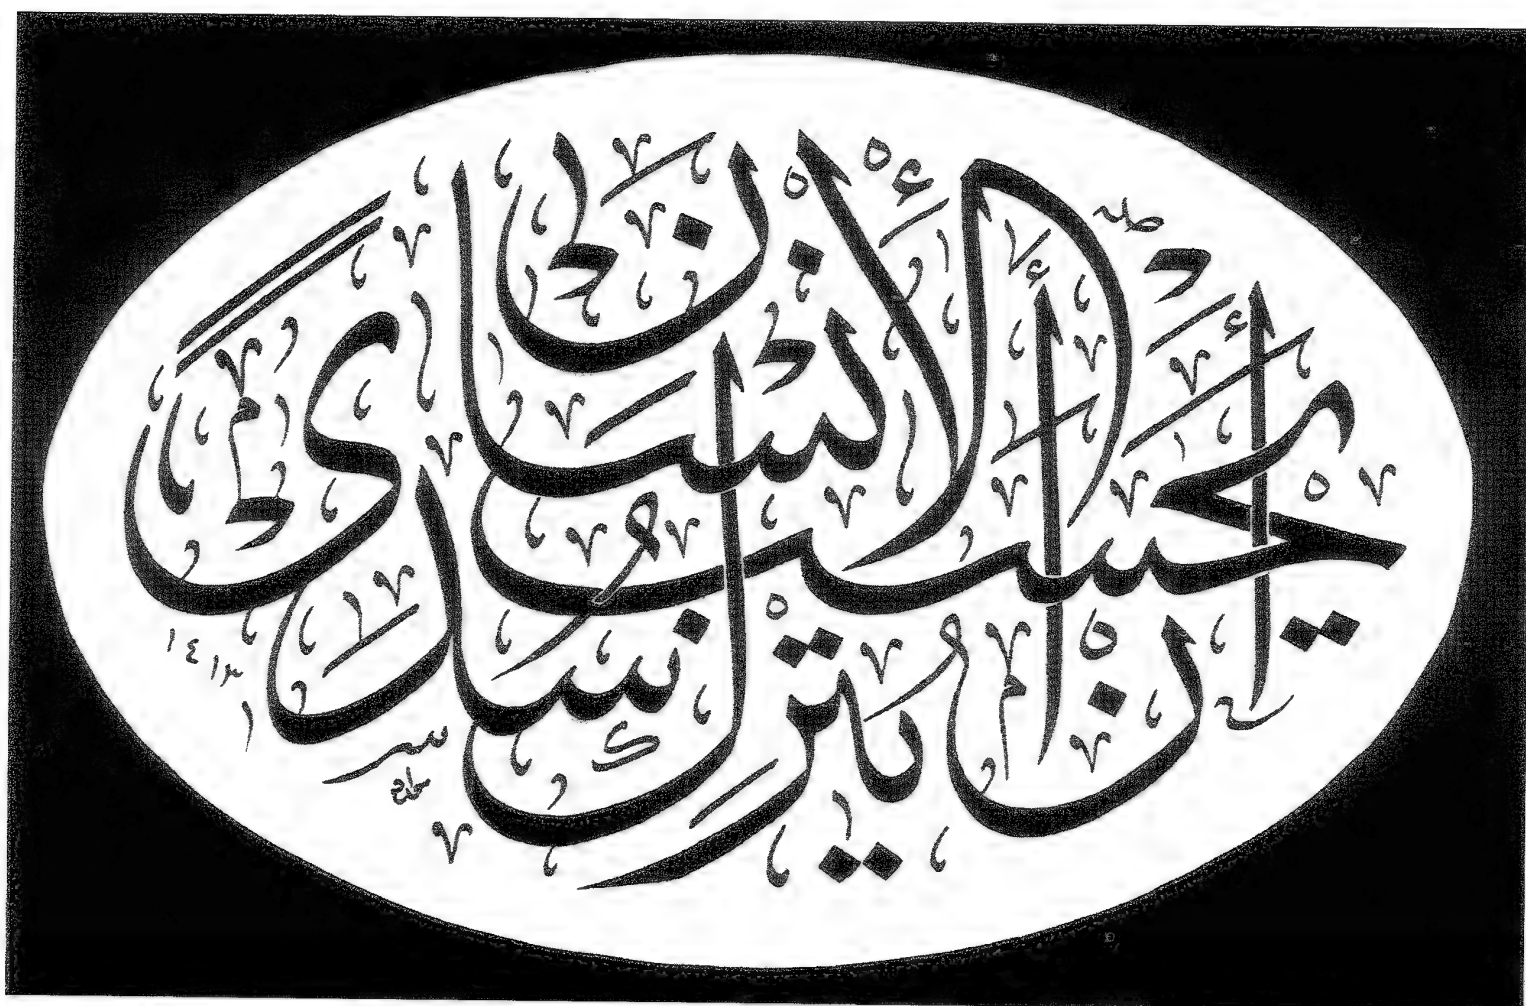 أَيَحْسَبُ الْإِنْسَانُ أَنْ يُتْرَكَ سُدًى
١٤١٣